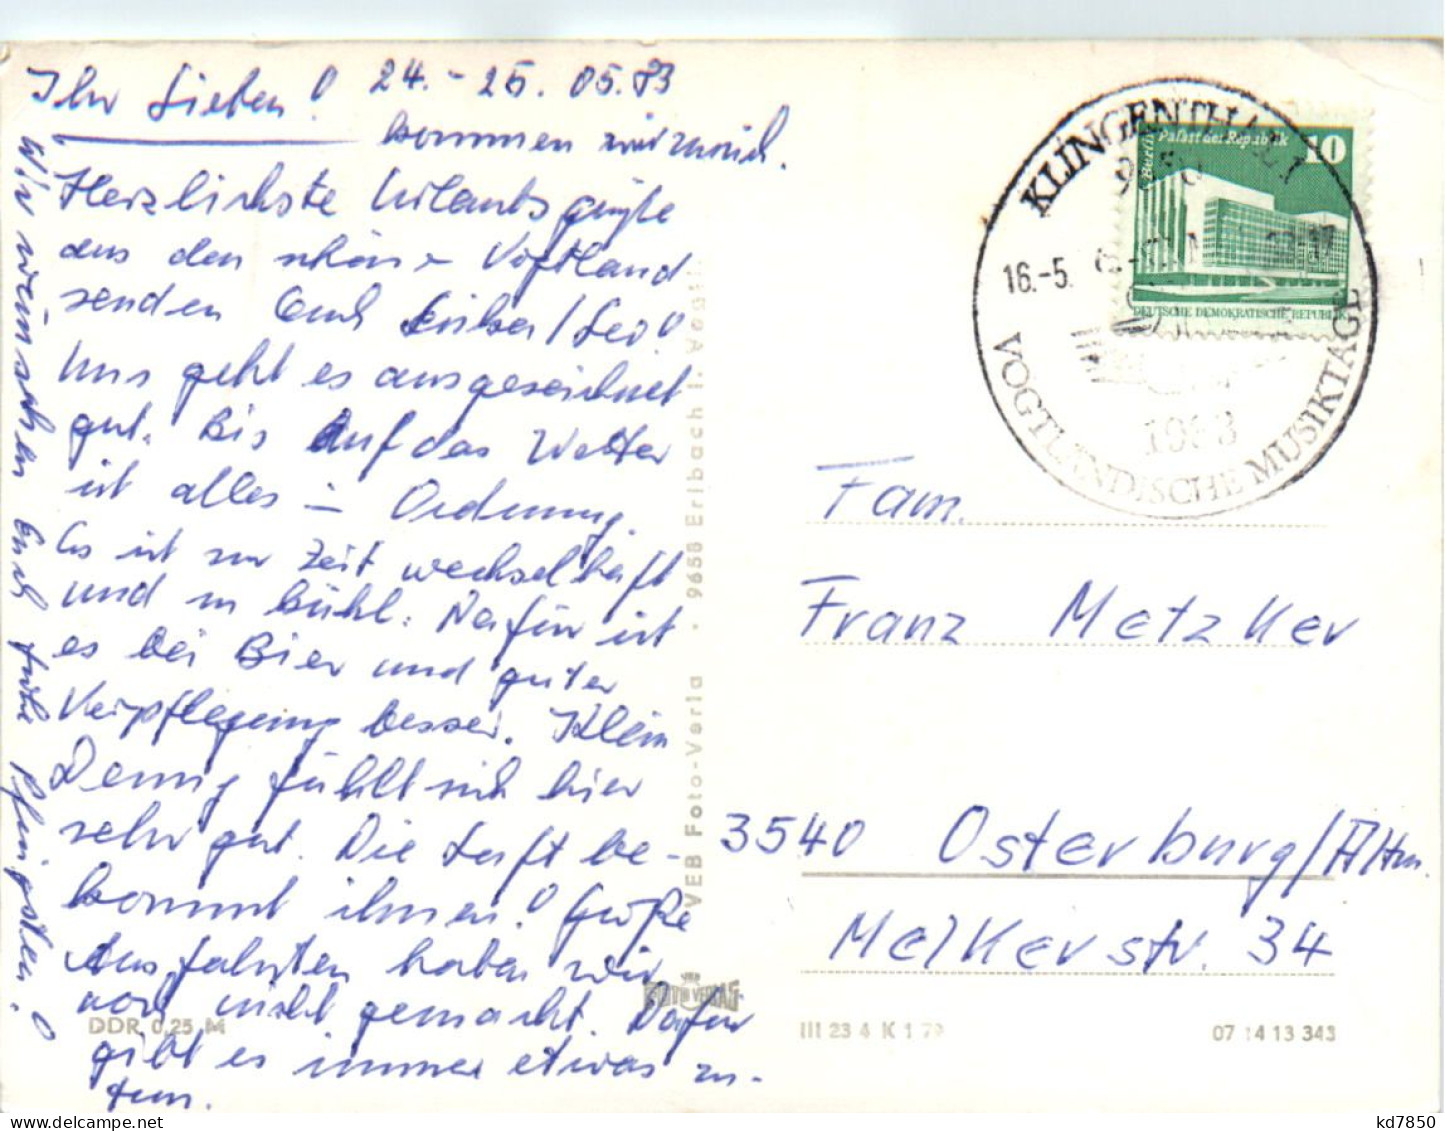 Ihr Lieben! 24. - 25. 05. 83
kommen wir zurück.
Herzlichste Urlaubsgrüße
aus den schönen Vogtland
senden Euch
Uns geht es ausgezeichnet
gut. Bis Auf das Wetter
ist alles in Ordnung.
Es ist zur Zeit wechselhaft
und zu kühl. Dafür ist
es bei Bier und guter
Verpflegung besser. Klein
Denny fühlt sich hier
sehr gut. Die Luft be-
kommt ihnen! Große
Ausfahrten haben wir
noch nicht gemacht. Dafür
gibt es immer etwas zu
tun.
Wir wünschen Euch frohe Pfingsten!
VEB Foto-Verlag · 9655 Erlbach i. Vogtl.
FOTO VERLAG
DDR 0,25 M
KLINGENTHAL 1
9650
16.-5.
1983
VOGTLÄNDISCHE MUSIKTAGE
Berlin Palast der Republik 10
DEUTSCHE DEMOKRATISCHE REPUBLIK
Fam.
Franz Metzker
3540 Osterburg/Altm.
Melkerstr. 34
III 23 4 K 1 79
07 14 13 343
kd7850